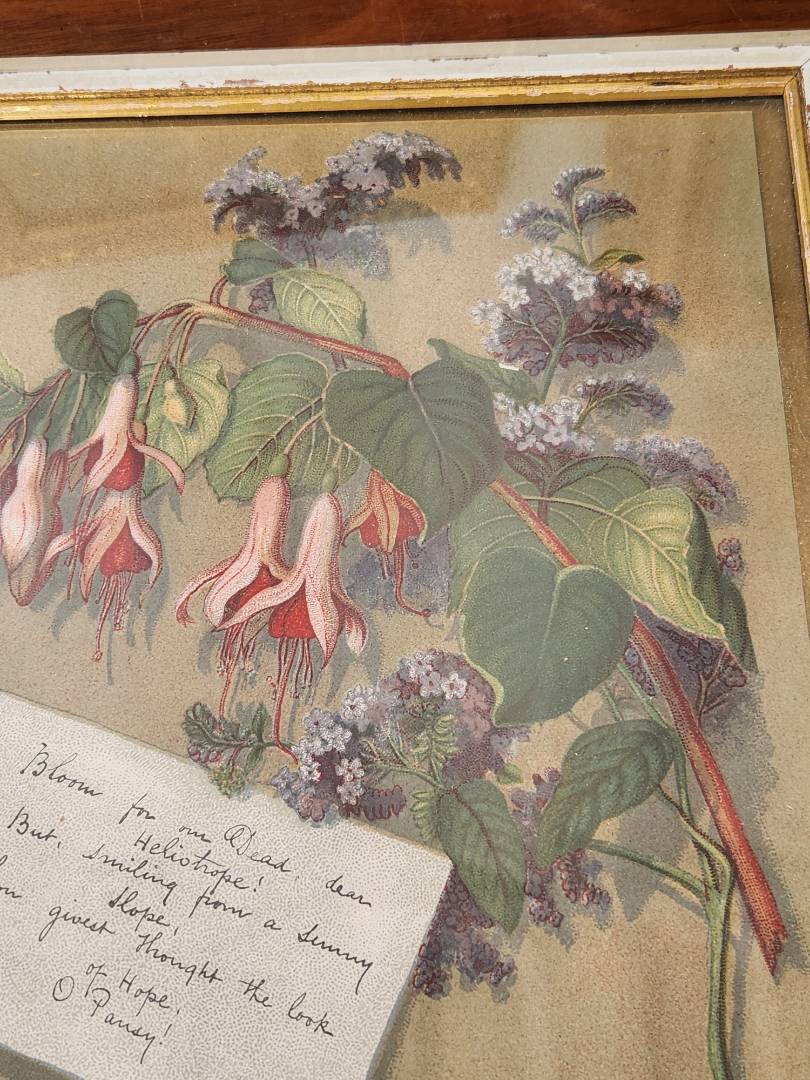 Bloom for our Dead, dear
Heliotrope!
But, smiling from a sunny
slope,
givest Thought the look
of Hope,
O Pansy!